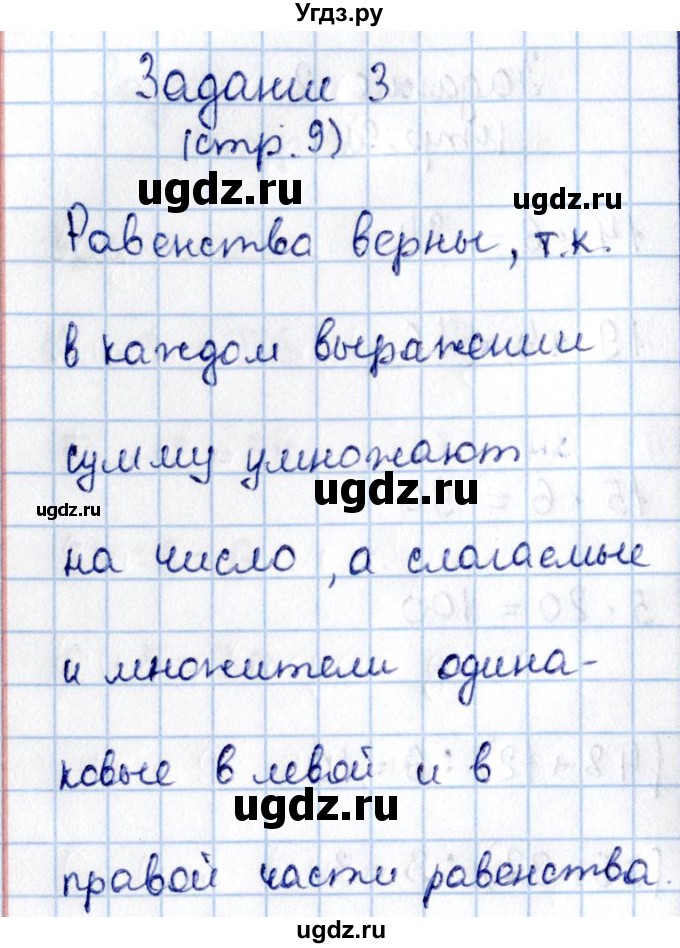 Угдз.ру
Задание 3
(стр. 9)
ugdz.ru
ugdz.ru
Равенства верны, т.к.
в каждом выражении
сумму умножают
ugdz.ru
ugdz.ru
на число, а слагаемые
и множители одина-
ковые в левой и в
ugdz.ru
правой части равенства.
ugdz.ru